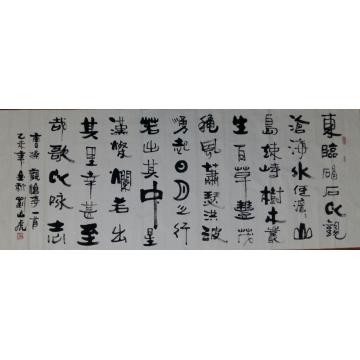 東臨碣石以觀
滄海水何澹澹山
島竦峙樹木叢
生百草豐茂
秋風蕭瑟洪波
湧起日月之行
若出其中星
漢燦爛若出
其里幸甚至
哉歌以詠志
曹操觀滄海一首
乙未年劉山虎